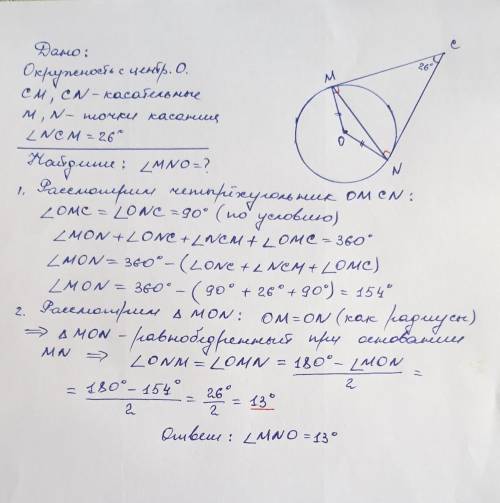 Дано:
Окружность с центр. О.
CM, CN - касательные
M, N - точки касания
∠NCM = 26°
Найдите: ∠MNO = ?
C
26°
M
O
N
1. Рассмотрим четырёхугольник OMCN:
∠OMC = ∠ONC = 90° (по условию)
∠MON + ∠ONC + ∠NCM + ∠OMC = 360°
∠MON = 360° - (∠ONC + ∠NCM + ∠OMC)
∠MON = 360° - (90° + 26° + 90°) = 154°
2. Рассмотрим △MON: OM = ON (как радиусы)
⇒ △MON - равнобедренный при основании
MN ⇒ ∠ONM = ∠OMN = (180° - ∠MON)/2 =
= (180° - 154°)/2 = 26°/2 = 13°
Ответ: ∠MNO = 13°